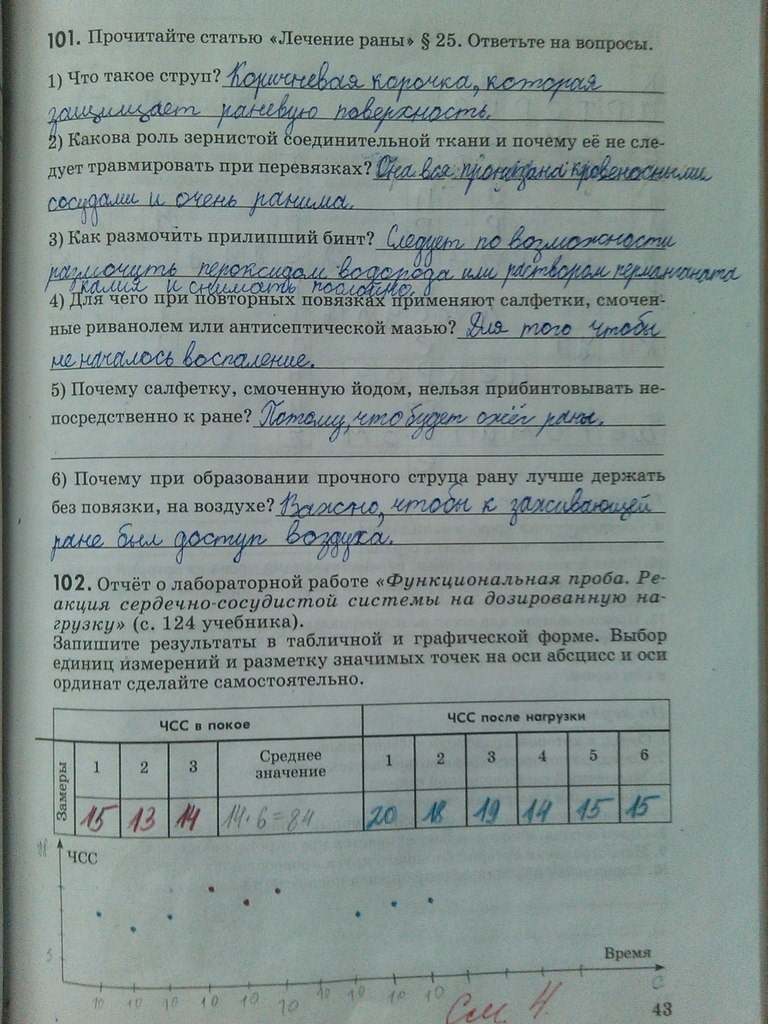 101. Прочитайте статью «Лечение раны» § 25. Ответьте на вопросы.
1) Что такое струп? Коричневая корочка, которая
защищает раневую поверхность.
2) Какова роль зернистой соединительной ткани и почему её не сле-
дует травмировать при перевязках? Она вся пронизана кровеносными
сосудами и очень ранима.
3) Как размочить прилипший бинт? Следует по возможности
размочить пероксидом водорода или раствором перманганата
калия и снимать послойно.
4) Для чего при повторных повязках применяют салфетки, смочен-
ные риванолем или антисептической мазью? Для того чтобы
не началось воспаление.
5) Почему салфетку, смоченную йодом, нельзя прибинтовывать не-
посредственно к ране? Потому, что будет ожёг раны.
6) Почему при образовании прочного струпа рану лучше держать
без повязки, на воздухе? Важно, чтобы к заживающей
ране был доступ воздуха.
102. Отчёт о лабораторной работе «Функциональная проба. Ре-
акция сердечно-сосудистой системы на дозированную на-
грузку» (с. 124 учебника).
Запишите результаты в табличной и графической форме. Выбор
единиц измерений и разметку значимых точек на оси абсцисс и оси
ординат сделайте самостоятельно.
ЧСС в покое ЧСС после нагрузки
Замеры 1 2 3 Среднее значение 1 2 3 4 5 6
15 13 14 14·6=84 20 18 19 14 15 15
ЧСС
5
Время
с
10 10 10 10 10 10 10 10 10 10
См 4.
43